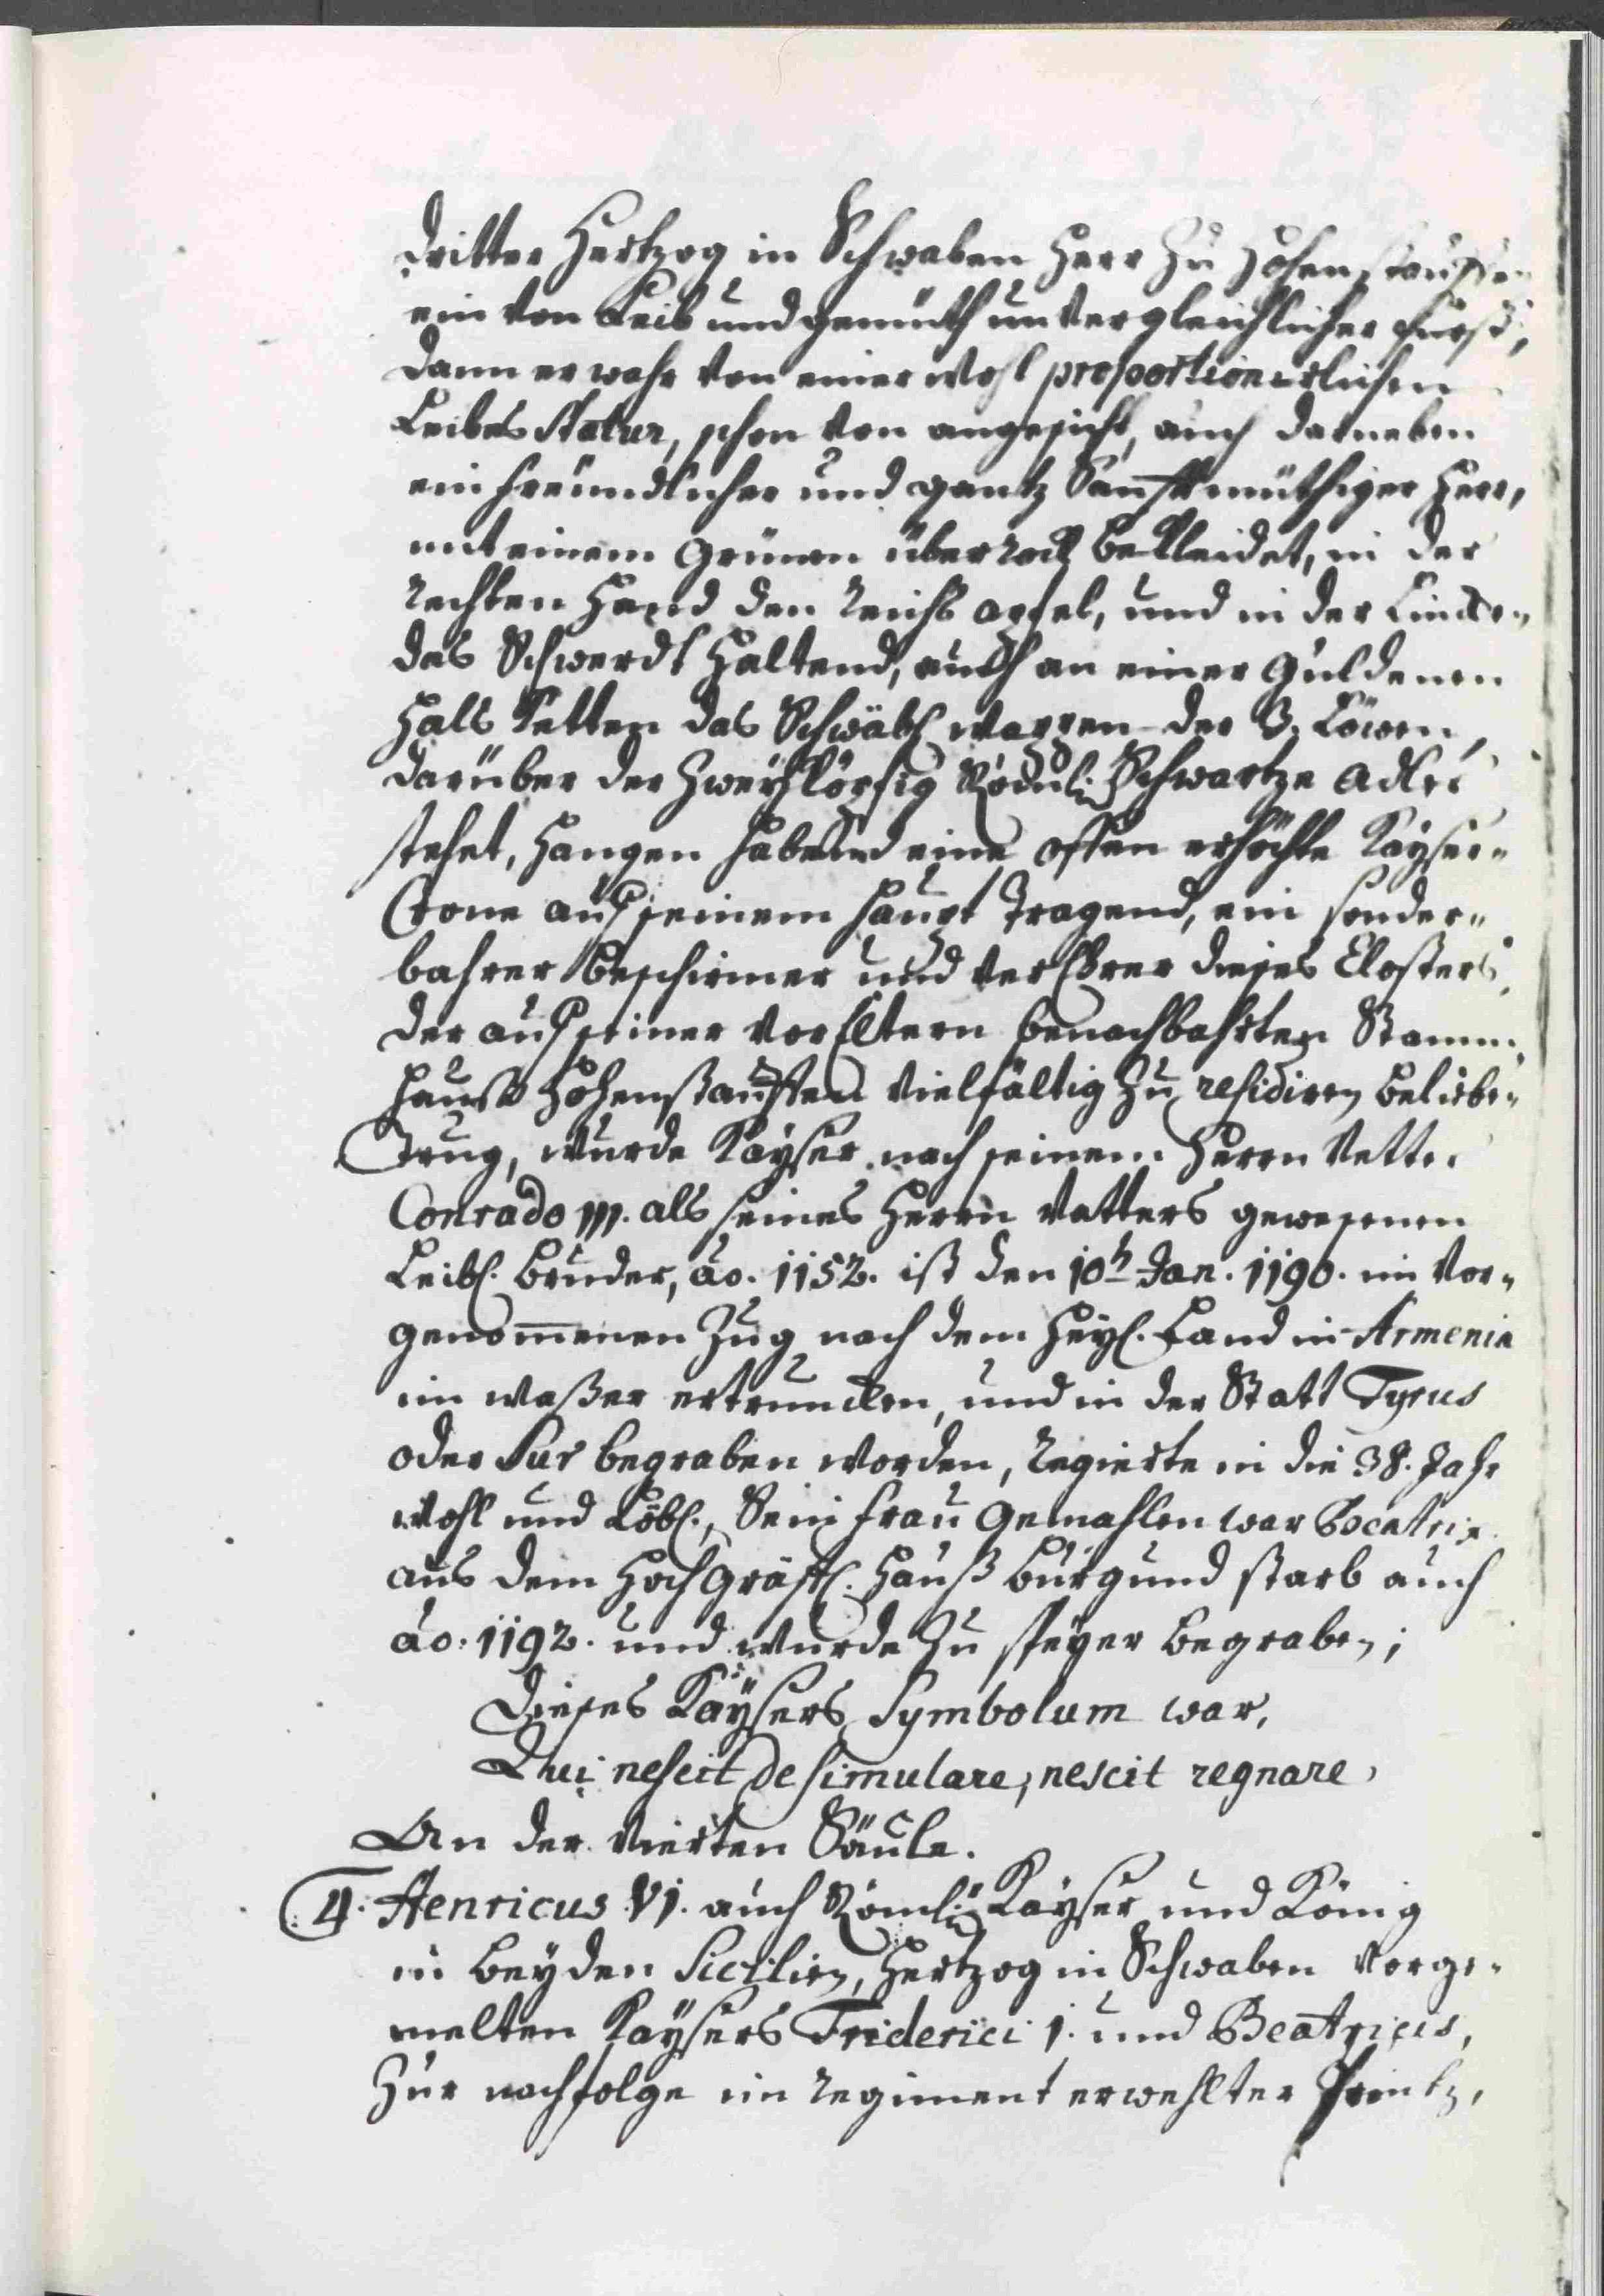 dritter Hertzog in Schwaben Herr Zu Hohenstauffen
ein von Leib und gemüth unvergleichlicher fürst,
dann er wahr von einer wohl proportionirlichen
Leibes Statur, schon von angesicht, auch darneben
ein freündlicher und gantz Sanfftmüthiger Herr,
mit einem Grünen überrock bekleidet, in der
rechten Hand den Reichs apfel, und in der Lincken
das Schwerdt Haltend, auch an einer Guldenen
Hals Ketten das Schwäbl wappen der 3. Löwen,
darüber der Zweyköpfig Römli: Schwartze Adler
stehet, Hangen habend eine offen erhöchte Kayser„
Crone auf seinem Haupt Tragend, ein sonder„
bahrer Beschirmer und verEhrer dieses Closters,
der auf seiner VorEltern benachbahrten Stamm„
Hauß Hohenstauffen Vielfältig Zu residiren belieben
Trug, wurde Kayser nach seinem Herrn Vetter
Conrado III. als seines Herrn Vatters gewesenen
Leibl. Bruder, ao. 1152. ist den 10t Jan. 1190. im Vor„
genommenen Zug nach dem Heyl. Land in Armenia
im waßer ertruncken, und in der Statt Tyrus
oder Sur begraben worden, Regierte in die 38. Jahr
wohl und Löbl., Sein frau Gemahlen war Beatrix
aus dem HochGräfl. Hauß Burgund starb auch
ao. 1192. und wurde Zu speyer begraben;
Dieses Kaÿsers Symbolum war,
Qui nescit desimulare, nescit regnare,
An der Vierten Säule.
4. Henricus VI. auch Römli: Kayser und König
in Beyden Sicilien, Hertzog in Schwaben Vorge„
melten Kaÿsers Friderici 1. und Beatricis,
Zur nachfolge im Regiment erwehlter Printz,